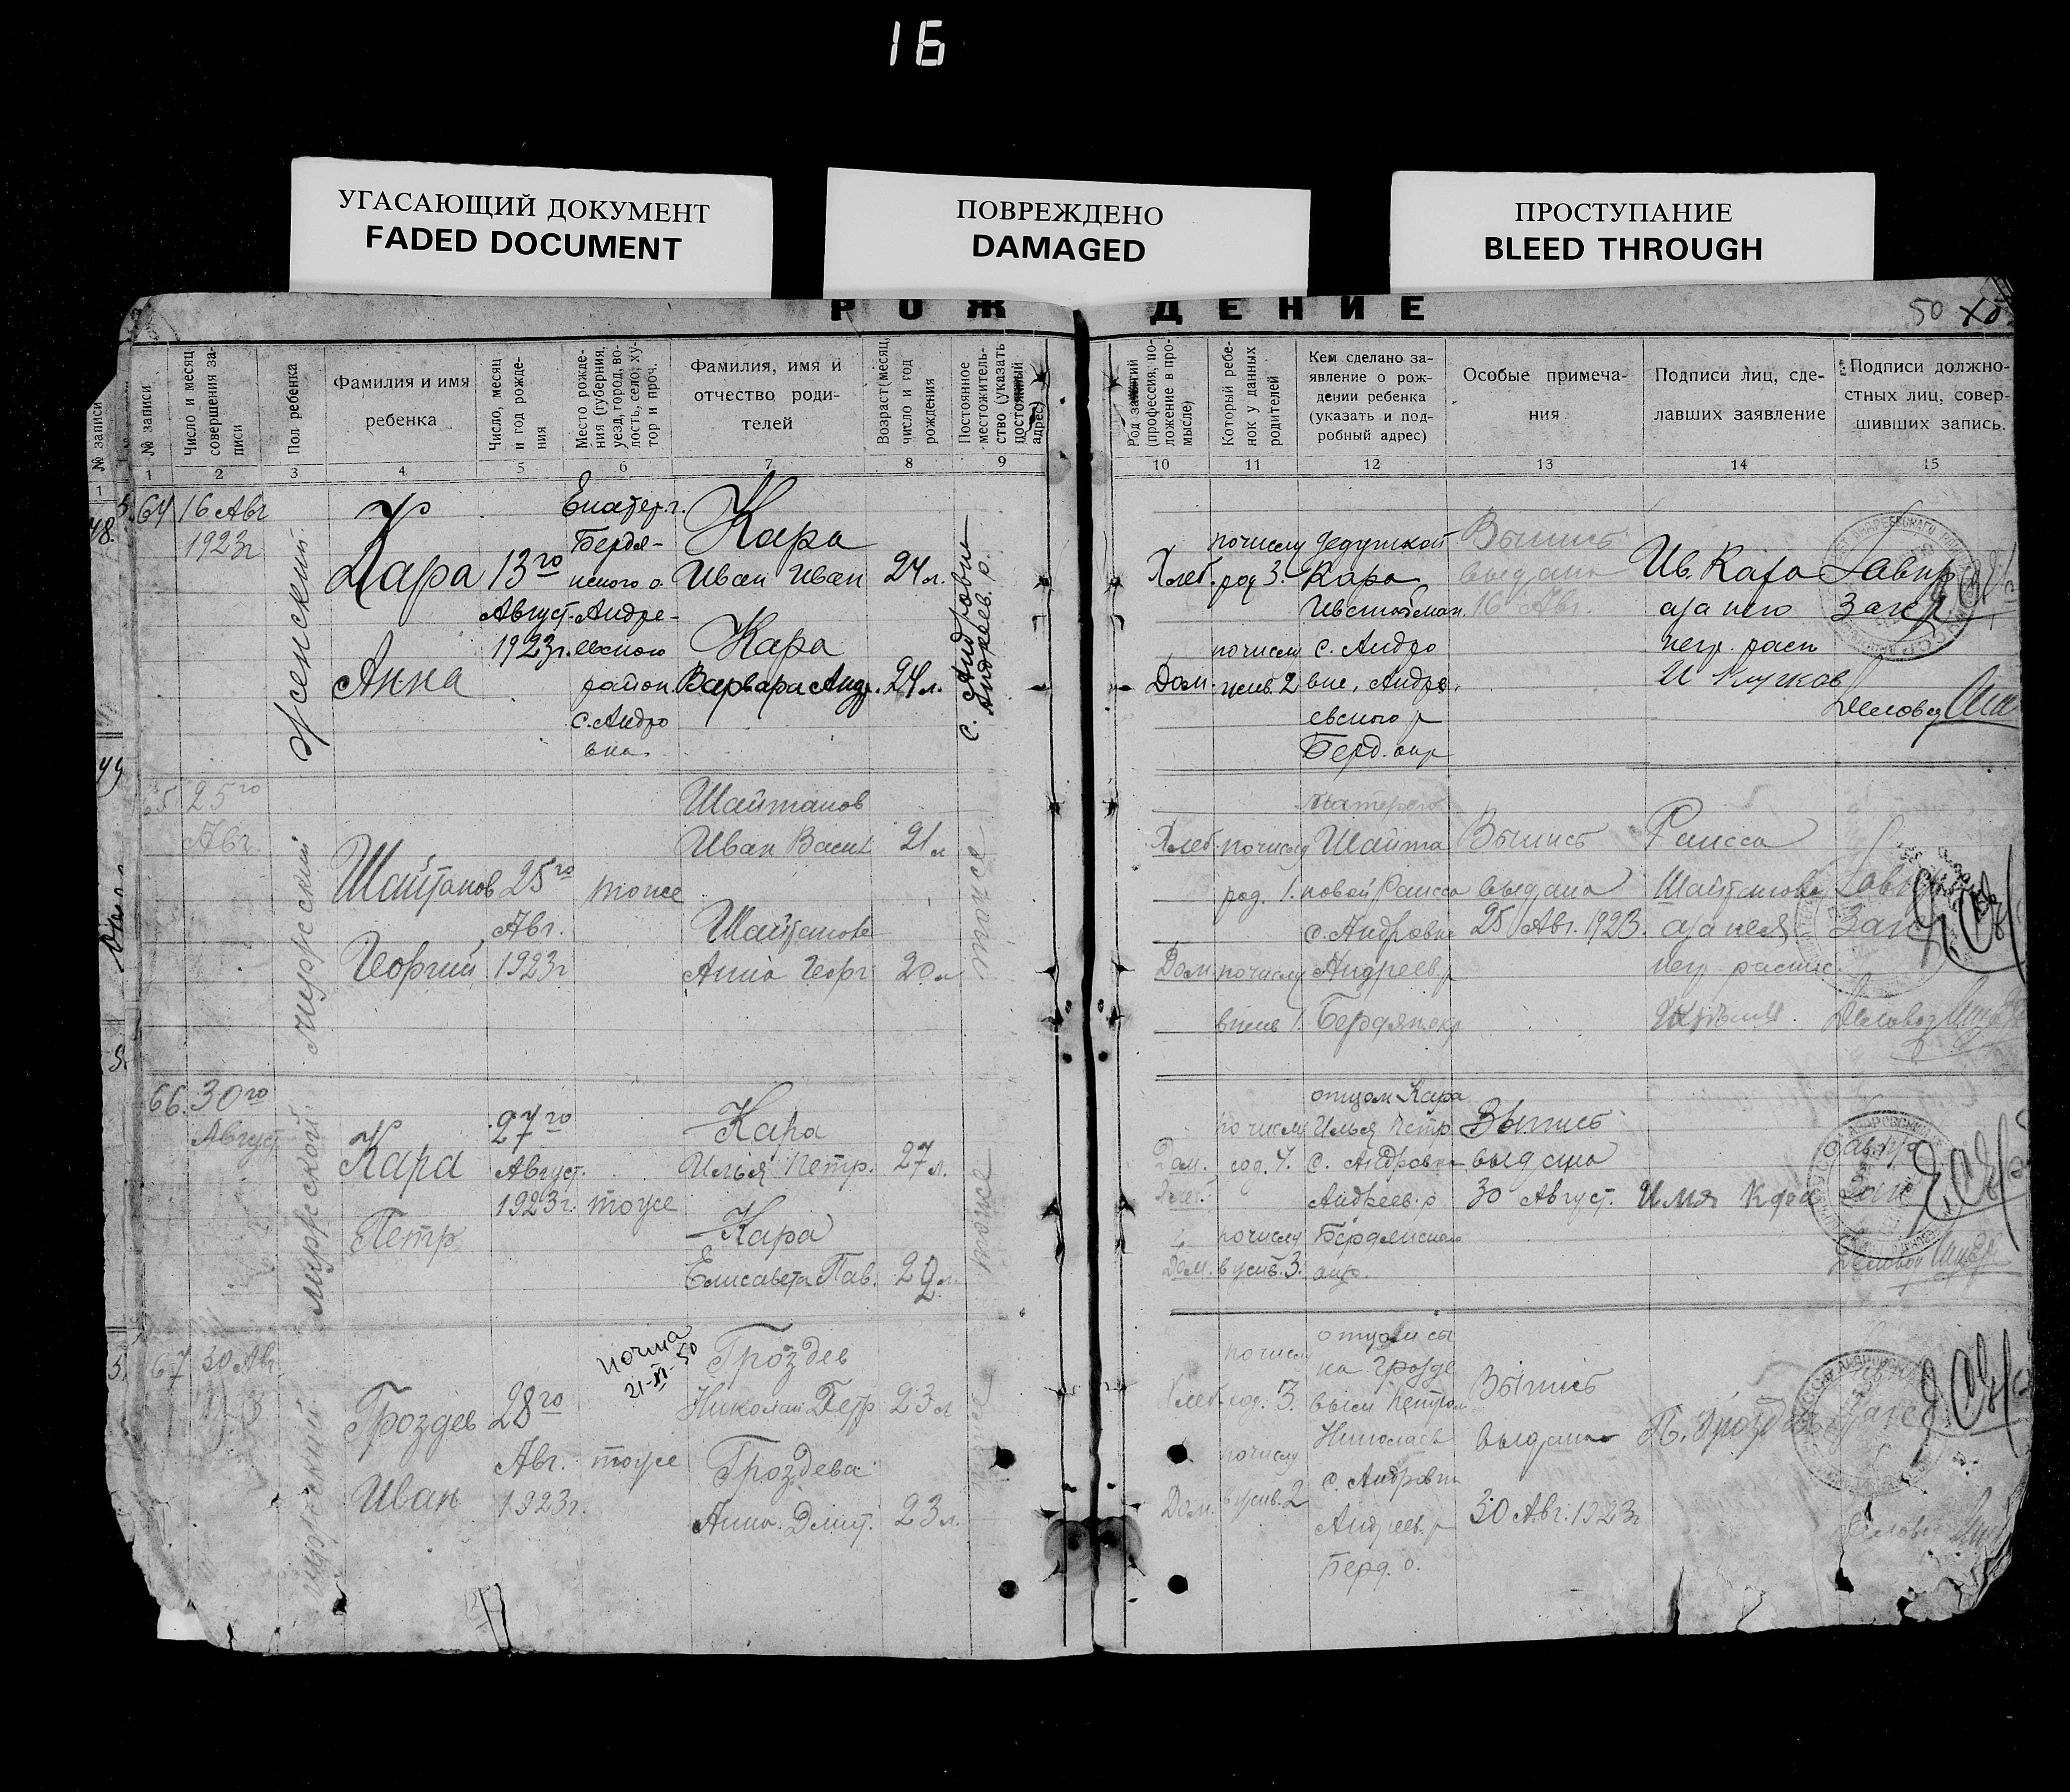 16
УГАСАЮЩИЙ ДОКУМЕНТ
FADED DOCUMENT
ПОВРЕЖДЕНО
DAMAGED
ПРОСТУПАНИЕ
BLEED THROUGH
РОЖДЕНИЕ
50
№ записи
№ записи
Число и месяц совершения записи
Пол ребенка
Фамилия и имя
ребенка
Число, месяц и год рождения
Место рождения (губерния, уезд, город, волость, село, хутор и проч.
Фамилия, имя и
отчество роди-
телей
Возраст (месяц, число и год рождения
Постоянное местожительство (указать постоянный адрес)
Род занятий (профессия, положение в промысле)
Который ребенок у данных родителей
Кем сделано за-
явление о рож-
дении ребенка
(указать и под-
робный адрес)
Особые примеча-
ния.
Подписи лиц, сде-
лавших заявление
Подписи должно-
стных лиц, совер-
шивших запись.
1
1 2 3 4 5 6 7 8 9
10 11 12 13 14 15
48.
64
16 Авг
1923г
Женский
Кара
Анна
13го
Август.
1923г.
Екатер. г.
Бердя-
нского о.
Андре-
евского
район.
с. Андро
вка.
Кара
Иван Иван
24 л.
Кара
Варвара Андр.
24 л.
с. Андровки
Андреев. р.
Хлеб.
по числу
род 3.
Дом.
по числу
жив. 2
дедушкой
Кара
с. Андро
вке, Андре.
евского р
Берд. окр
Выпись
выдана
16 Авг.
Ив. Кара
а за него
негр. расп
Деловод
49
25го
Авг.
мужеский
Шайтанов
Георгий
25го
Авг.
1923г
тоже
Шайтанов
Иван Васил
21 л
Шайтанова
Анна Георг
20 л
тоже
Хлеб.
по числу
род. 1.
Дом
по числу
в жив 1.
матерью
Шайта
новой Раисса
с. Андровка
Андреев. р
Бердян окр
Выпись
выдана
25 Авг. 1923.
Раисса
Шайтанова
а за нея
негр. распис.
Деловод
66.
30го
Август
мужеской
Кара
Петр
27го
Август.
1923г.
тоже
Кара
Илья Петр.
27 л.
Кара
Елисавета Пав.
тоже
Дом.
Хлеб.
по числу
род. 4.
Дом.
по числу
в жив. 3.
отцом Кара
Илья Петр
с. Андровка
Андреев. р
Бердянского
окр.
Выпись
выдана
30 Август.
Илия Кара
Деловод
67
30 Авг
мужеский
Гроздев
Иван
28го
Авг.
1923г.
тоже
21-XI-50
Гроздев
Николай Петр
23 л
Гроздева
Анна Дмит.
23 л.
тоже
Хлеб
по числу
род. 3.
Дом.
по числу
в жив. 2
отцом сы
на Грозде
вым Петром
Николаев
с. Андровка
Андреев. р
Берд. о.
Выпись
выдана
30 Авг. 1923г
П. Гроздев
Деловод